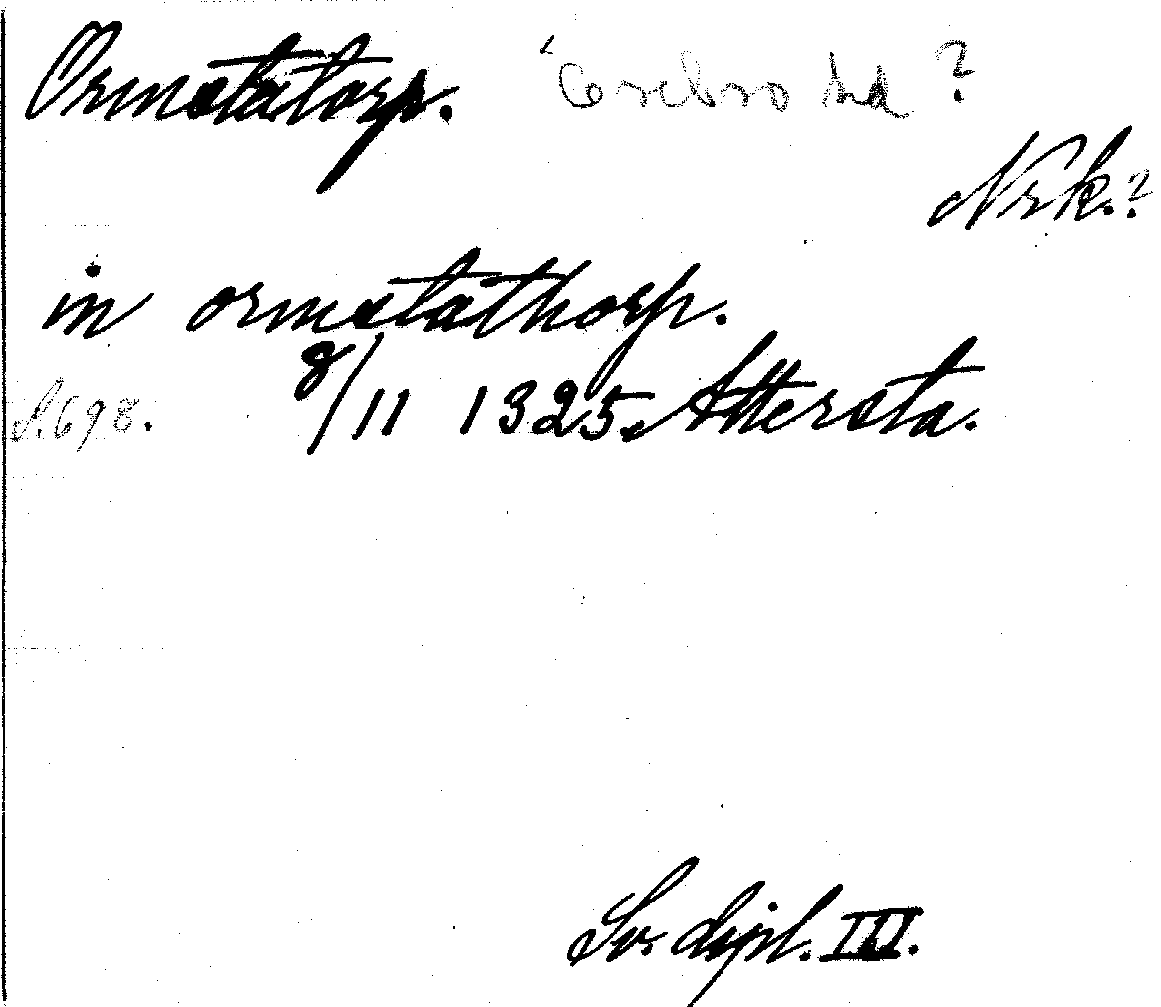 Ormatatorp. Örebro hd?
Nrk.?
in ormatathorp.
S. 698. 8/11 1325. Attersta.
Sv. dipl. III.